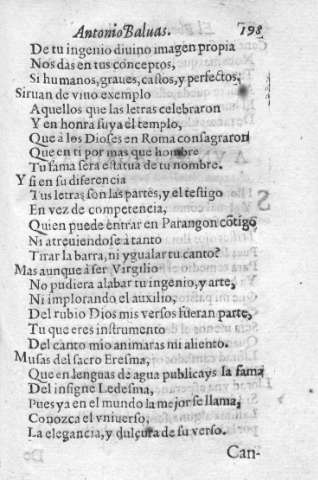 Antonio Baluas. 198
De tu ingenio diuino imagen propia
Nos das en tus conceptos,
Si humanos, graues, castos, y perfectos,
Siruan de viuo exemplo
Aquellos que las letras celebraron
Y en honra suya el templo,
Que à los Dioses en Roma consagraron
Que en ti por mas que hombre
Tu fama será estatua de tu nombre.
Y si en su diferencia
Tus letras son las partes, y el testigo
En vez de competencia,
Quien puede entrar en Parangon cõtigo
Ni atreuiendose à tanto
Tirar la barra, ni ygualar tu canto?
Mas aunque à ser Virgilio
No pudiera alabar tu ingenio, y arte,
Ni implorando el auxilio,
Del rubio Dios mis versos fueran parte,
Tu que eres instrumento
Del canto mio animaras mi aliento.
Musas del sacro Eresma,
Que en lenguas de agua publicays la fama
Del insigne Ledesma,
Pues ya en el mundo la mejor se llama,
Conozca el vniuerso,
La elegancia, y dulçura de su verso.
Can-